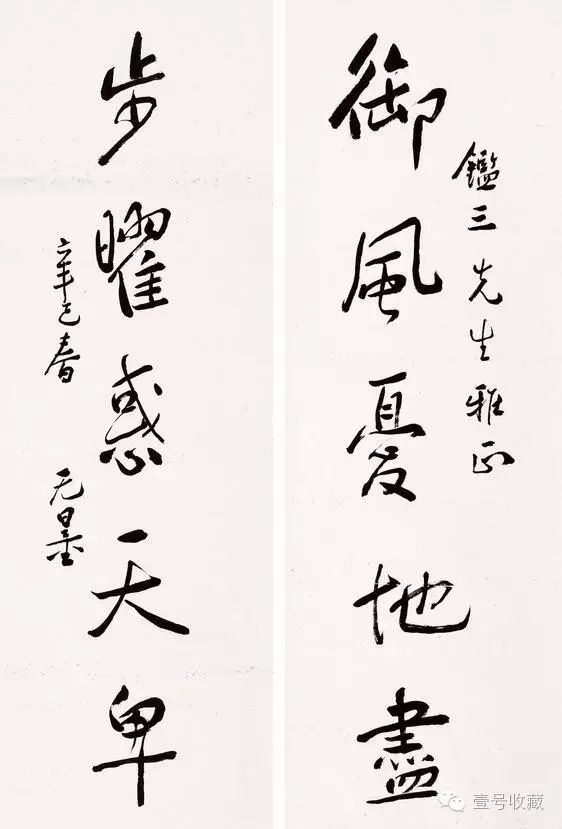 鑑三先生雅正
御風憂地盡
步曜惑天卑
辛巳春 无量
壹号收藏